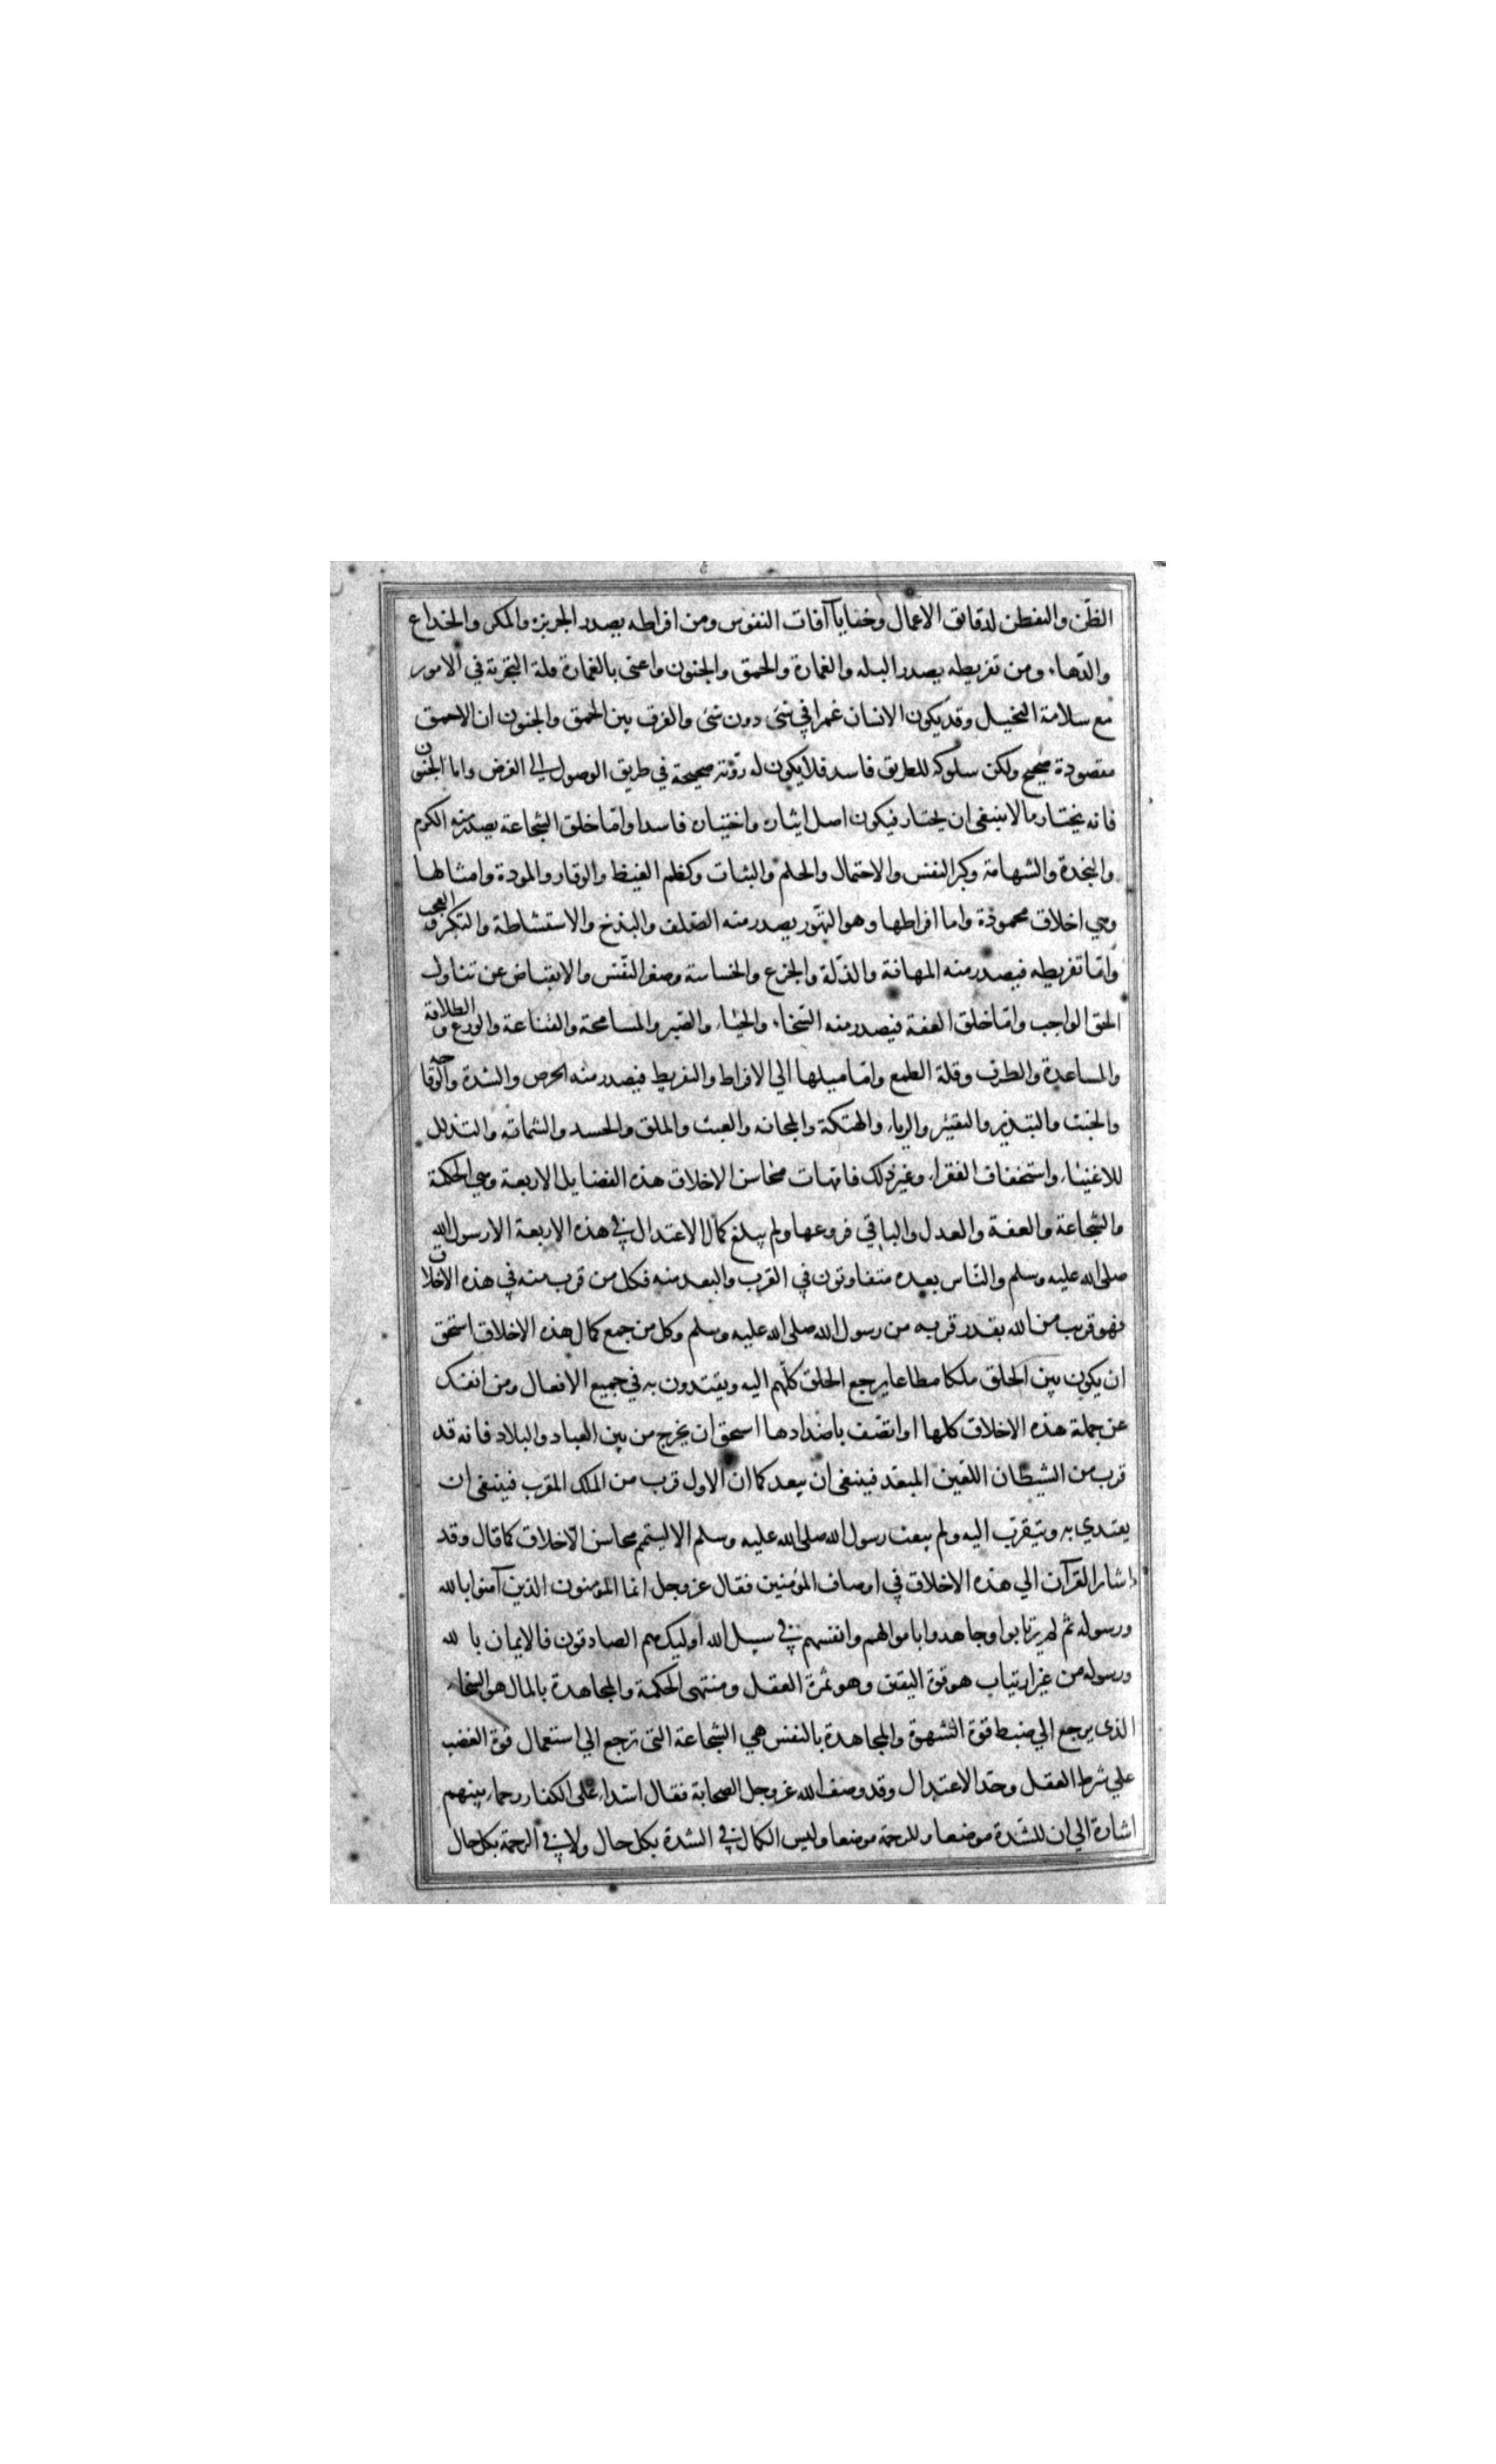 الظن والتفطن لدقائق الاعمال وخفايا آفات النفوس ومن افراطه يصدر الجربزة والمكر والخداع
والدهاء ومن تفريطه يصدر البله والغمارة والحمق والجنون واعنى بالغمارة قلة التجربة في الامور
مع سلامة التخيل وقد يكون الانسان غمرا في شئ دون شئ والفرق بين الحمق والجنون ان الاحمق
مقصودة صحيح ولكن سلوكه للطريق فاسد فلا يكون له روّية صحيحة في طريق الوصول الي الغرض واما الجنون
فانه يختار ما لا ينبغى ان يختار فيكون اصل ايثاره واختياره فاسدا وامّا خلق الشجاعة يصدر منه الكرم
والنجدة والشهامة وكبر النفس والاحتمال والحلم والثبات وكظم الغيظ والوقار والمودة وامثالها
وهي اخلاق محمودة واما افراطها وهو التهّور يصدر منه الصّلف والبذخ والاستشاطة والتكبر والعجب
وامّا تفريطه فيصدر منه المهانة والذلّة والجزع والخساسة وصغر النّفس والانقباض عن تناول
الحق الواجب وامّا خلق العفة فيصدر منه السّخاء والحياء والصّبر والمسامحة والقناعة والورع والطلاقة
والمساعدة والظرف وقلة الطمع وامّا ميلها الي الافراط والتفريط فيصدر منه الحرص والشدة والوقاحة
والخبث والتبذير والتقتير والرياء والهتكة والمجانه والعبث والملق والحسد والشماته والتذلل
للاغنياء واستخفاف الفقراء وغير ذلك فامّهات محاسن الاخلاق هذه الفضايل الاربعة وهي الحكمة
والشجاعة والعفة والعدل والباقي فروعها ولم يبلغ كمال الاعتدال في هذه الاربعة الا رسول الله
صلى الله عليه وسلم والنّاس بعده متفاوتون في القرب والبعد منه فكل من قرب منه في هذه الاخلاق
فهو قريب من الله بقدر قربه من رسول الله صلى الله عليه وسلم وكل من جمع كمال هذه الاخلاق استحق
ان يكون بين الخلق ملكا مطاعا يرجع الخلق كلّهم اليه ويقتدون به في جميع الافعال ومن انفك
عن جملة هذه الاخلاق كلها او اتصّف باضدادها استحق ان يخرج من بين العباد والبلاد فانه قد
قرب من الشيطان اللعين المبعد فينبغى ان يبعد كما ان الاول قرب من الملك المقرب فينبغى ان
يقتدي به ويتقرّب اليه ولم يبعث رسول الله صلى الله عليه وسلم الا ليتمم محاسن الاخلاق كما قال وقد
اشار القرآن الي هذه الاخلاق في اوصاف المؤمنين فقال عز وجل انما المؤمنون الذين آمنوا بالله
ورسوله ثم لم يرتابوا وجاهدوا باموالهم وانفسهم في سبيل الله اوليك هم الصادقون فالايمان بالله
ورسوله من غير ارتياب هو قوة اليقين وهو ثمرة العقل ومنتهى الحكمة والمجاهدة بالمال هو السّخاء
الذى يرجع الي ضبط قوة الشهوة والمجاهدة بالنفس هي الشجاعة التى ترجع الي استعمال قوة الغضب
علي شرط العقل وحدّ الاعتدال وقد وصف الله عز وجل الصحابة فقال اشداء على الكفار رحماء بينهم
اشارة الي ان للشّدة موضعا وللرحمة موضعا وليس الكمال في الشدة بكل حال ولا في الرحمة بكل حال